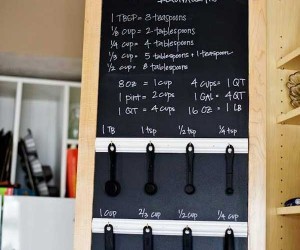 1 TBSP = 3 teaspoons
1/8 cup = 2 tablespoons
1/4 cup = 4 tablespoons
1/3 cup = 5 tablespoons + 1 teaspoon
1/2 cup = 8 tablespoons
8 oz = 1 cup
1 pint = 2 cups
1 QT = 4 cups
4 cups = 1 QT
1 GAL = 4 QT
16 oz = 1 lb
1 TB 1 tsp 1/2 tsp 1/4 tsp
1 cup 2/3 cup 1/2 cup 1/4 cup